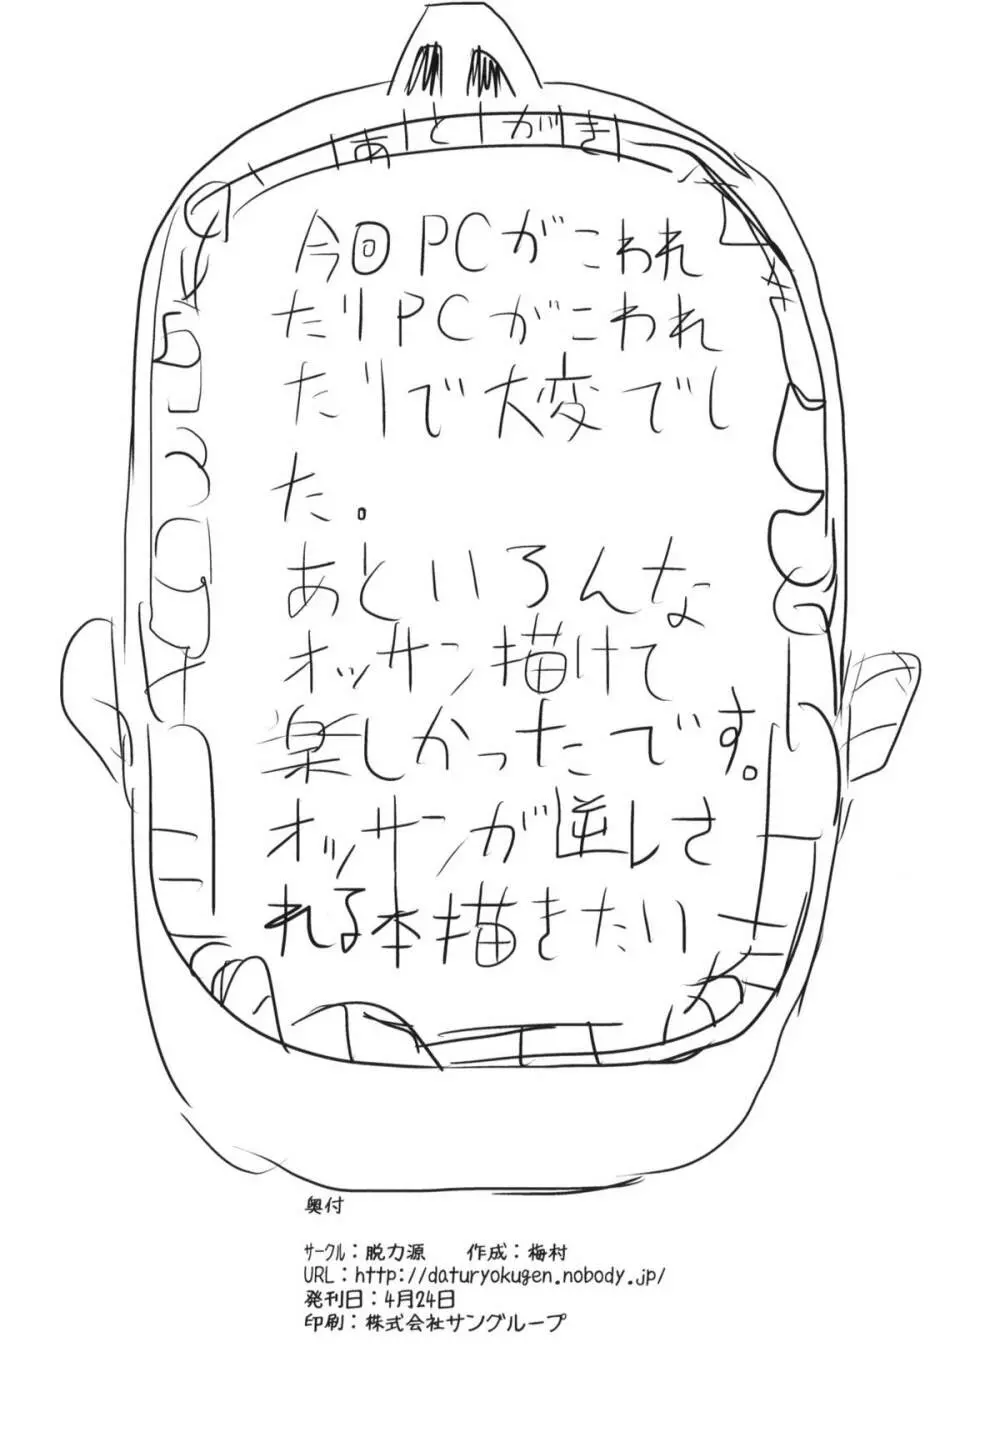 あとがき
今回PCがこわれ
たりPCがこわれ
たりで大変でし
た.
あといろんな
オッサン描けて
楽しかったです。
オッサンが逆しさ
れる本描きたい
奥付
ｻｰｸﾙ：脱力源　　作成：梅村
URL：http://daturyokugen.nobody.jp/
発刊日：4月24日
印刷：株式会社サングループ